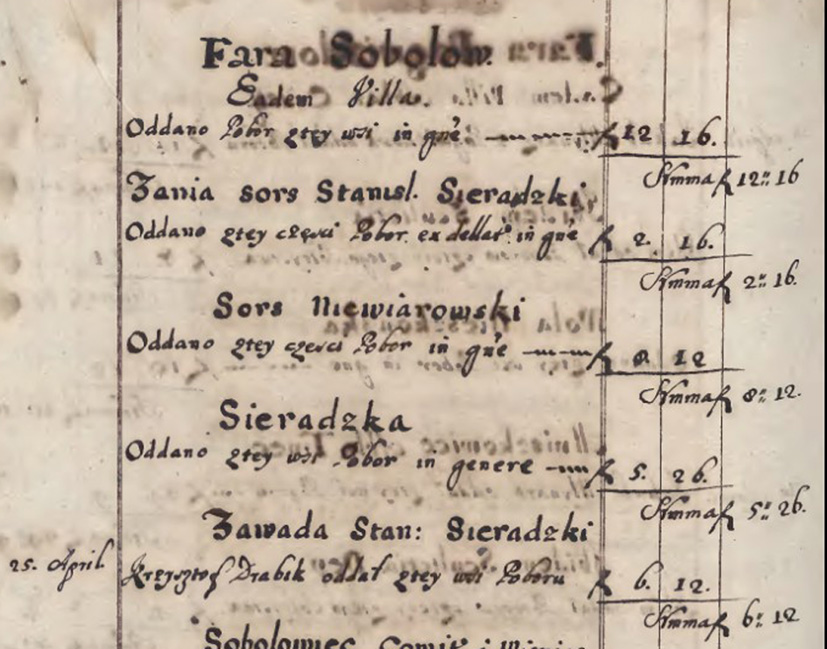 Fara Sobolow.
Eadem Villa.
Oddano Pobor ztey wsi in gñe f 12 16.
Summa f 12" 16
Zania sors Stanisl. Sieradzki
Oddano ztey części Pobor ex dellat: in gñe f 2. 16.
Summa f 2" 16.
Sors Niewiarowski
Oddano ztey części Pobor in gñe f 8 12
Summa f 8" 12.
Sieradzka
Oddano ztey wsi Pobor in genere f 5. 26.
Summa f 5" 26.
Zawada Stan: Sieradzki
25. April Krzysztof Drabik oddał ztey wsi Poboru f 6. 12.
Summa f 6" 12
Sobolowiec